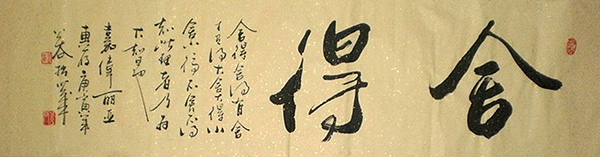 舍得
舍得舍得有舍
才有得大舍大得小
舍小得不舍不得
知此理者乃为
大智也
嘉偉丽亚
惠存庚寅年